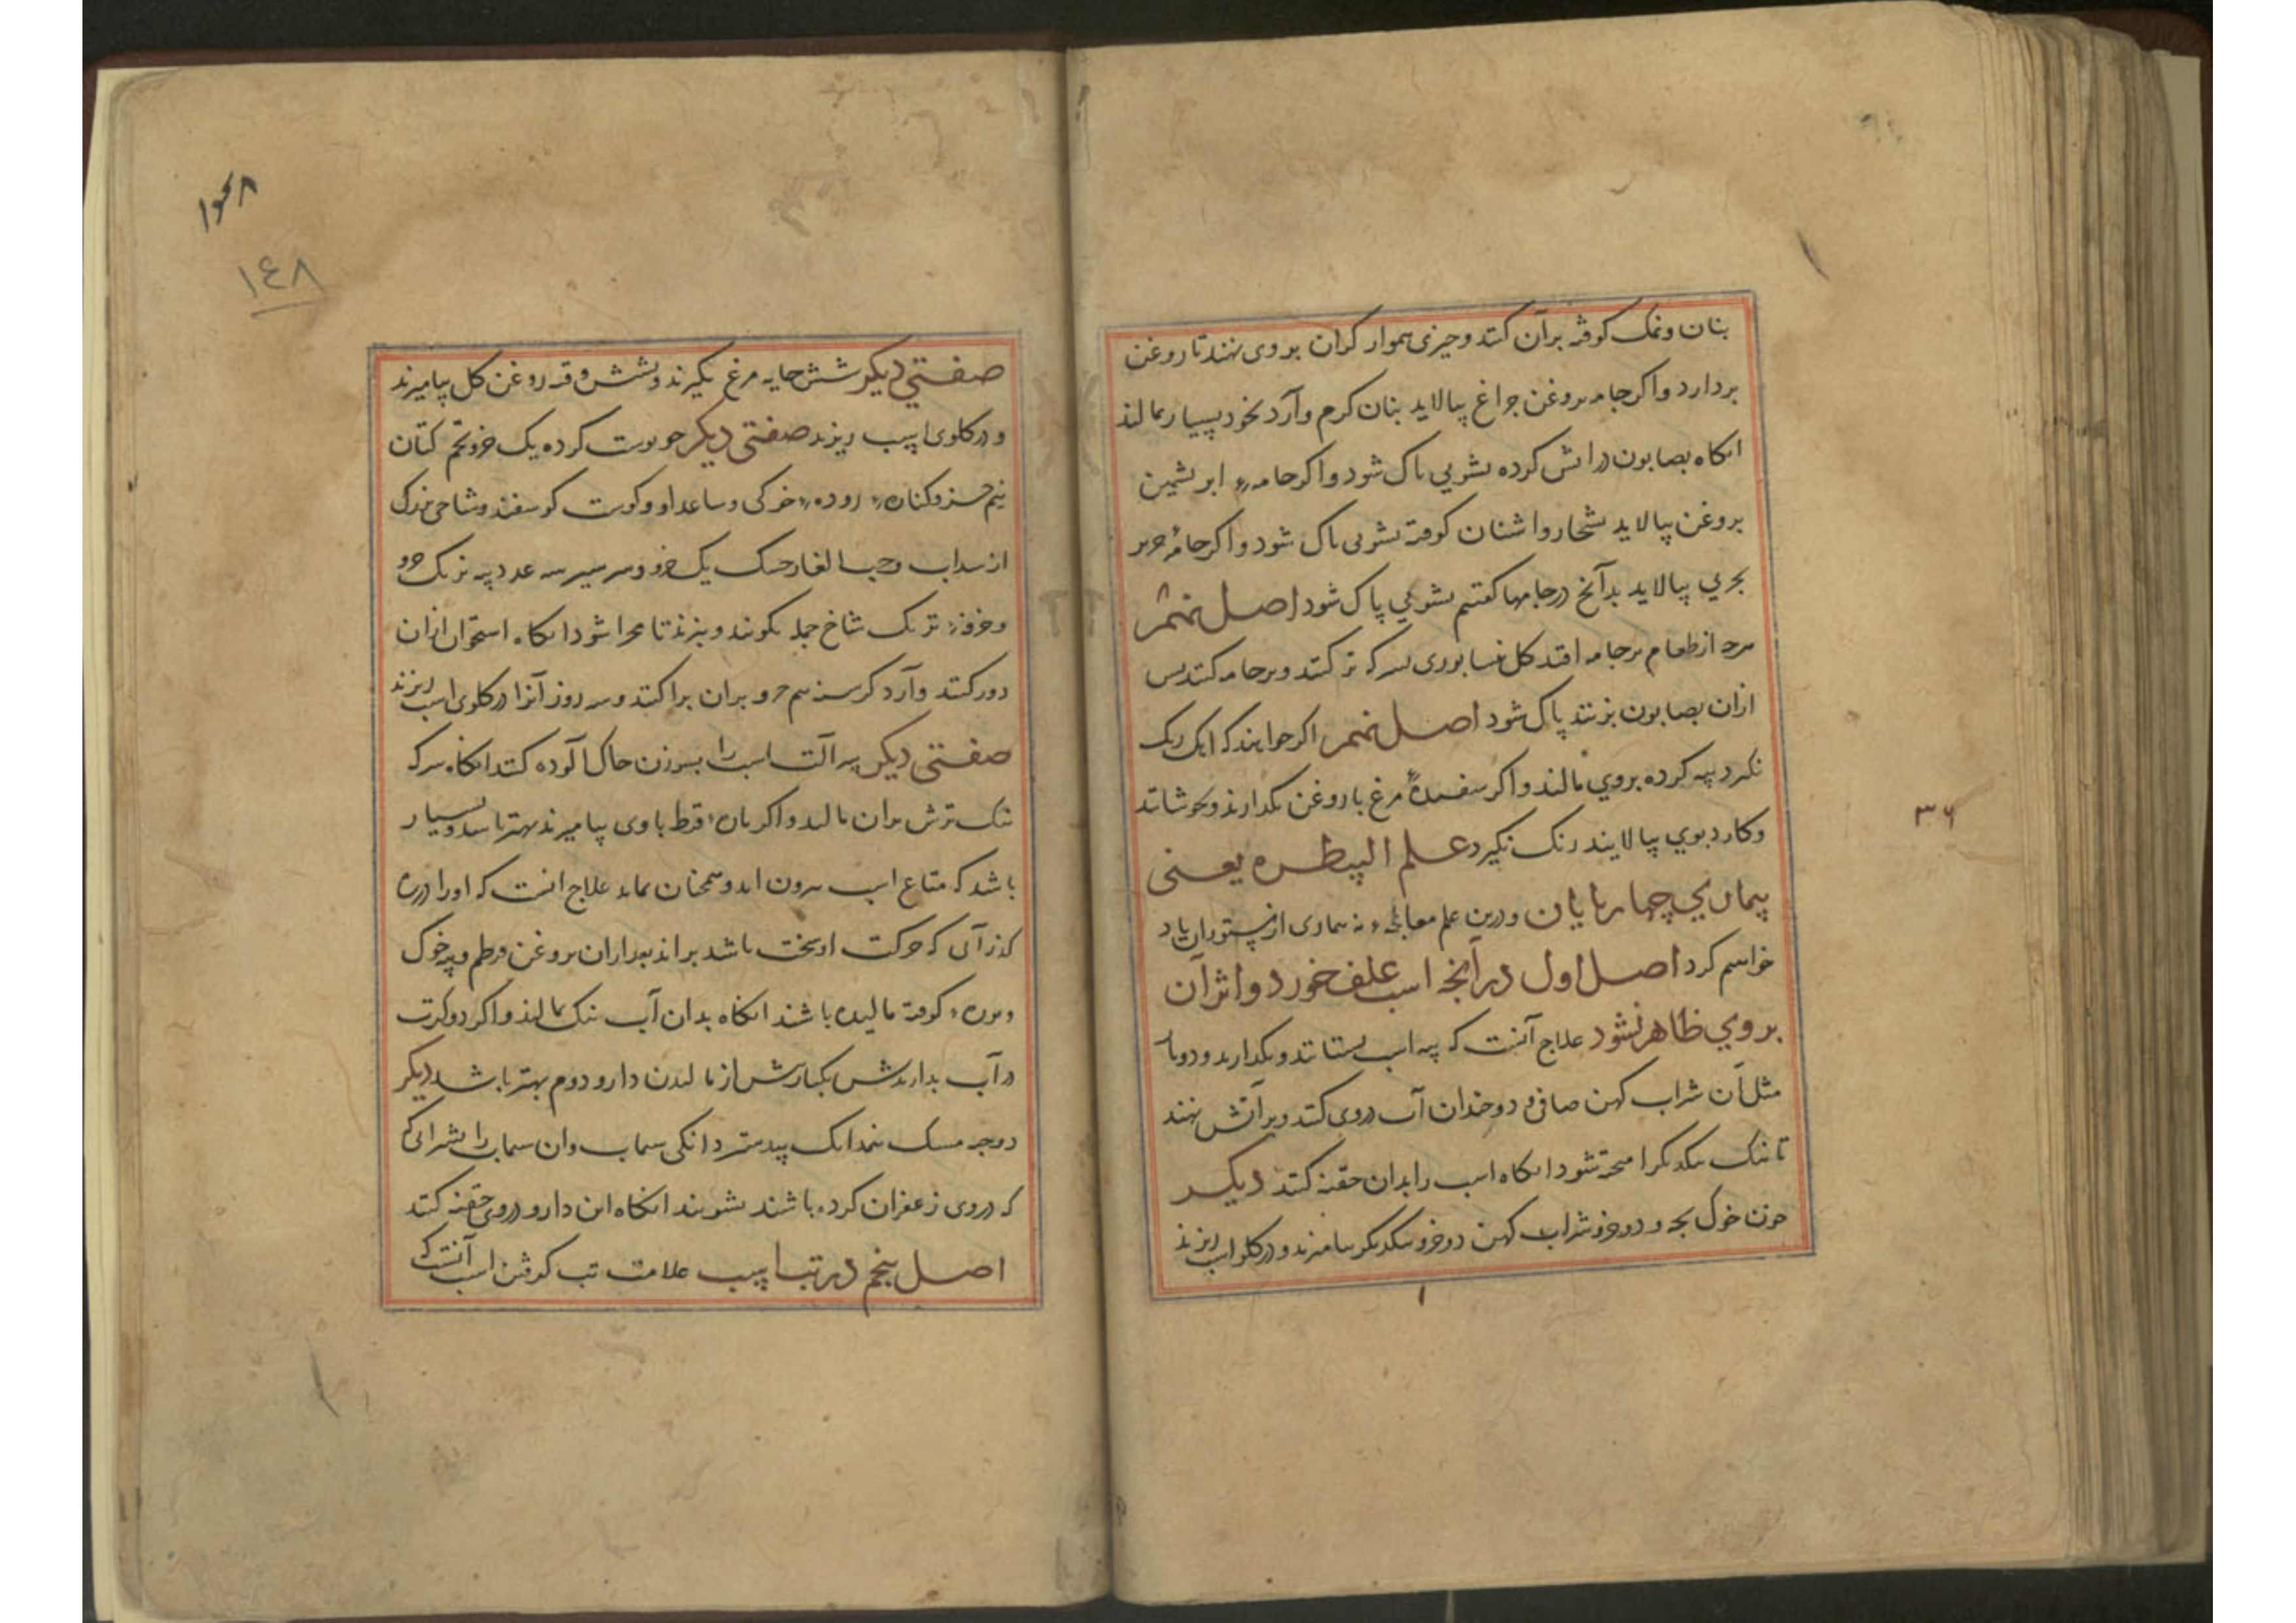 بنان ونمک کوفته برآن کنند وچیزی هموار کران بروی نهند تا روغن
بردارد واکر جامه بروغن چراغ بیالاید بنان کرم وآرد نخود بسیار بمالند
انکاه بصابون در آتش کرده بشویی پاک شود واکر جامهء ابریشمین
بروغن بیالاید بشخار واشنان کوفته بشویی پاک شود واکر جامهٔ حریر
بچربی بیالاید بدآنچ در جامها کفتیم بشویی پاک شود اصل
هرچ از طعام بر جامه افتد کل نسابوری بسرکه تر کنند وبر جامه کنند پس
ازان بصابون بزنند پاک شود اصل نهم اکر خواهند که
نکیرد پیه کرده بروی مالند واکر سفیدهٔ مرغ با روغن بکدازند وبجوشانند
وکارد بوی بیالایند زنک نکیرد علم البیطره یعنی
بیماری چهار پایان ودرین علم معالجهء نه بیماری از ستوران یاد
خواهیم کرد اصل اول در آنچه اسب علف خورد واثر آن
بروی ظاهر نشود علاج آنست که پیه اسب بستانند وبکدازند ودوبار
مثل آن شراب کهن صافی ودوچندان آب دروی کنند وبر آتش نهند
تا نیک بیکدیکر آمیخته شود انکاه اسب را بدان حقنه کنند دیکر
خون خوک بچه ودو جزو شراب کهن دو جزو بیکدیکر بیامیزند ودر کلو اسب ریزند
٣٦
١٤٨
صفتی دیکر شش خایه مرغ بکیرند وبشش وقیه روغن کل بیامیزند
ودر کلوی اسب ریزند صفتی دیکر جو پوست کرده یک جزو تخم کتان
نیم جزو رودهء خوکی وساعد او وکوشت کوسفند وشاخی بزرک
از سداب وحب الغار خشک یک جزو وسر سیر سه عدد پیه بز یک جزو
شاخ جمله بکوبند وبپزند تا مهرا شود انکاه استخوان ازان
دور کنند وآرد کرسنه نیم جزو بران پراکنند وسه روز آنرا در کلوی اسب ریزند
صفتی دیکر پیه آلت اسب را بسوزن خاک آلوده کنند انکاه سرکه
نیک ترش بران مالند واکر باوی بیامیزند بهتر باشد وبسیار
باشد که متاع اسب بیرون آید وهمچنان بماند علاج آنست که اورا در
کذر آبی که حرکت او سخت باشد برانند بعد ازان بروغن وپیه خوک
کوفته مالیده باشند انکاه بدان آب نیک بمالند واکر دو کرت
در آب بدارندش یکبار پیش از مالیدن دارو دوم بهتر باشد دیکر
دو حبه مسک بیدستر دانکی سیماب وآن سیماب را بشرابی
که دروی زعفران کرده باشند بشویند انکاه این دارو دروی حقنه کنند
اصل پنجم در تب اسب علامت تب کرفتن اسب آنست که